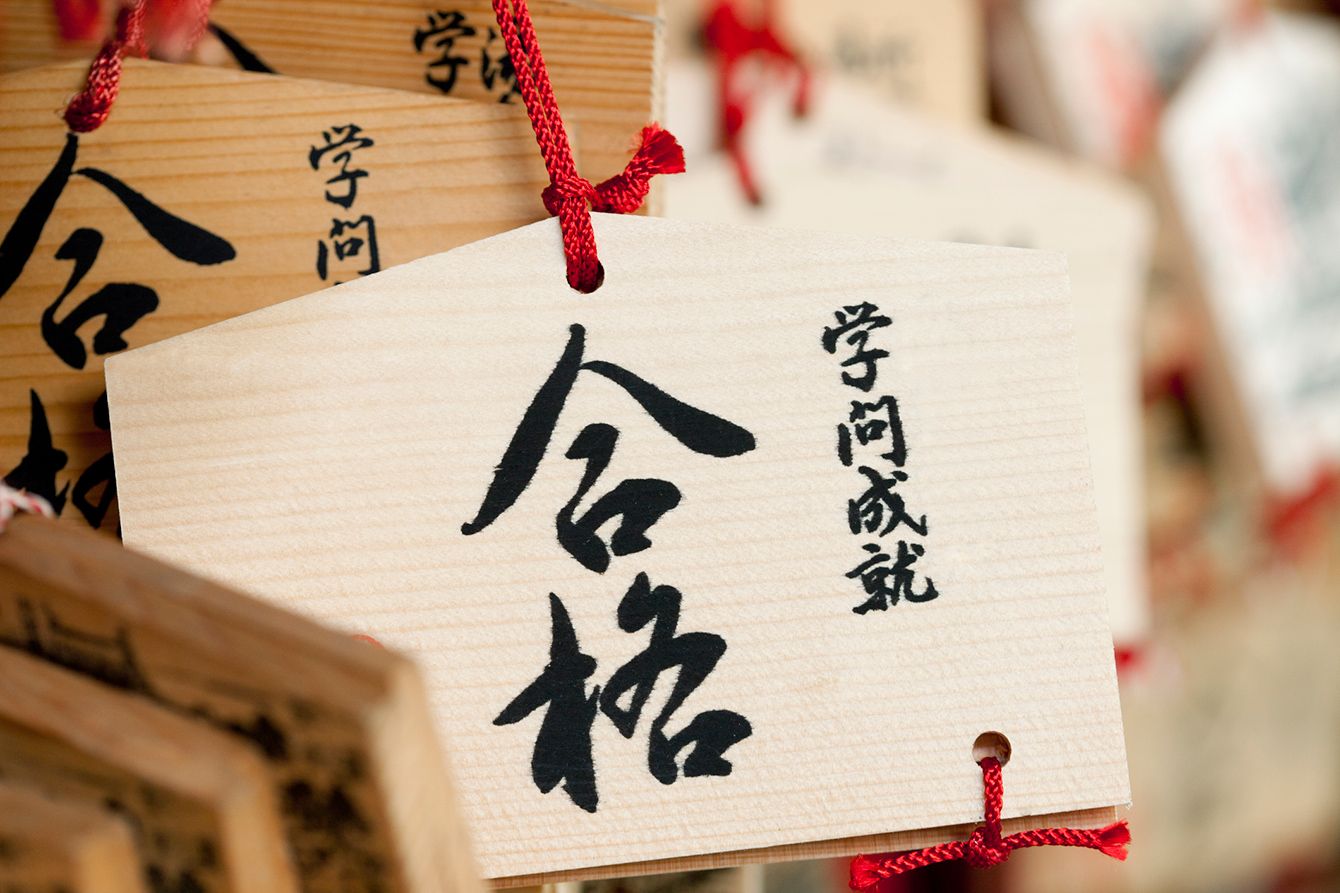 学
学問
合
学問成就
合格